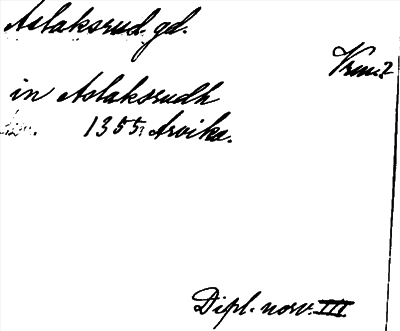 Aslaksrud. gd.
Vrml.?
in Aslaksrudh
1355. Arvika.
Dipl. norv. III